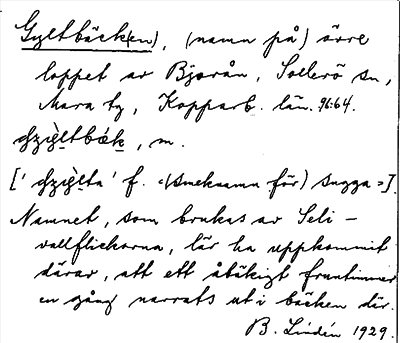 Gyltbäck(en), (namn på) övre
loppet av Bjorån, Sollerö sn,
Mora tg, Kopparb. län. 96:64.
f.
«(Smeknamn för) sugga»].
Namnet, som brukas av Seli-
vallflickorna, lär ha uppkommit
därav, att ett åtäkigt fruntimmer
en gång narrats ut i bäcken där.
B. Lindén 1929.